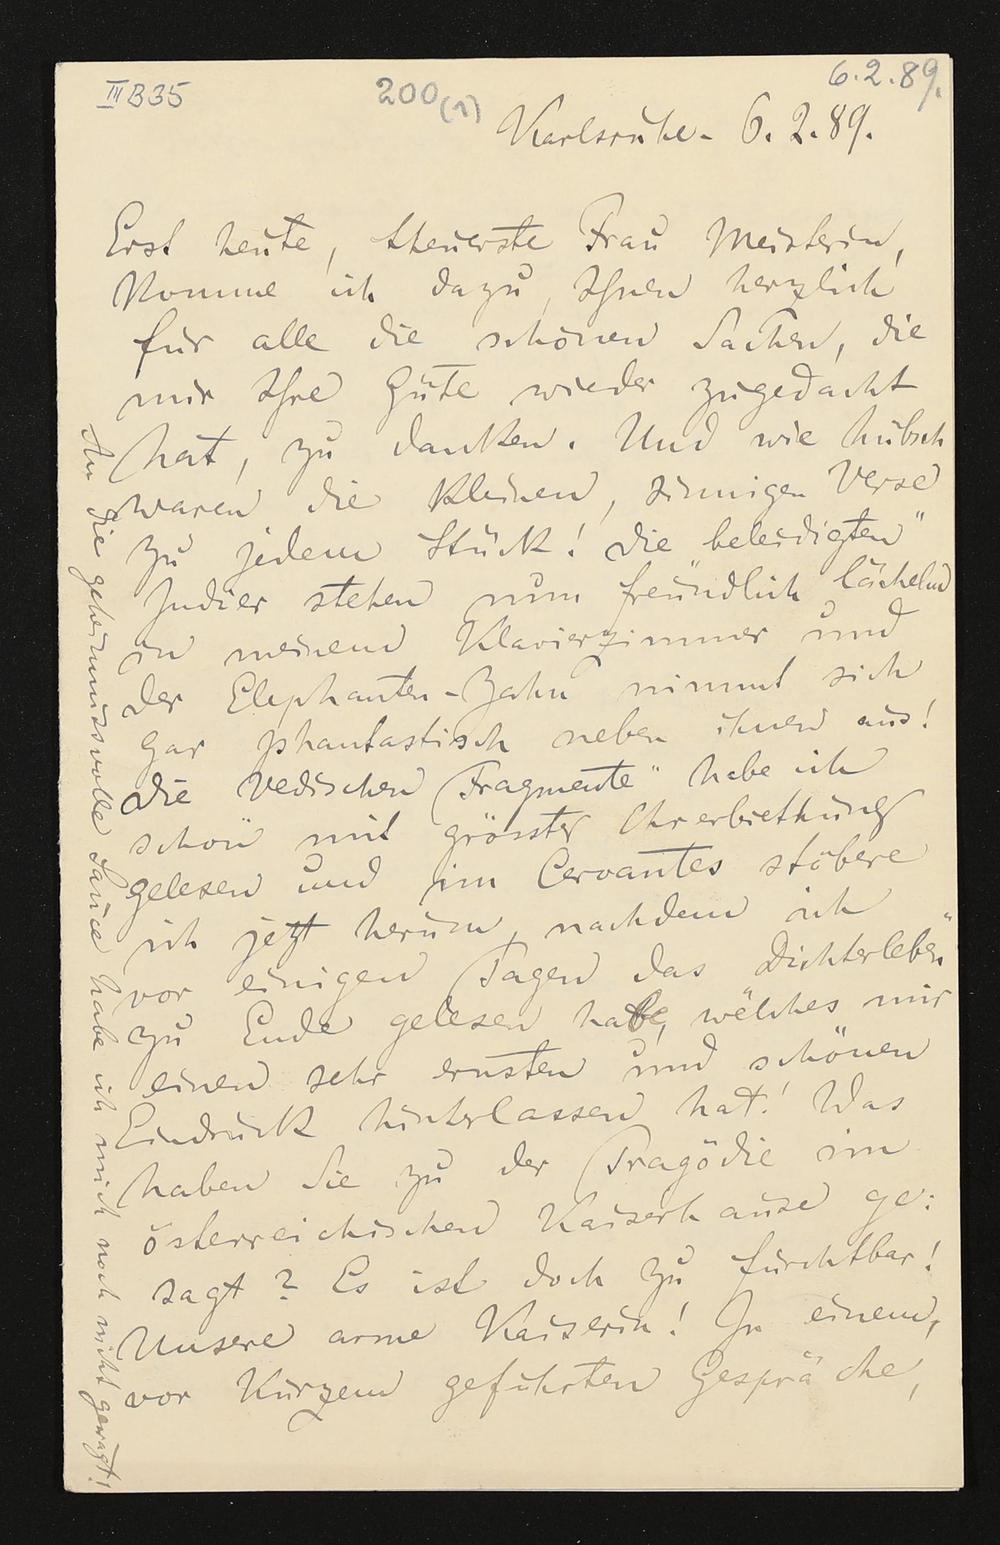 III B35
200(1)
6.2.89.
Karlsruhe - 6.2.89.
Erst heute, theuerste Frau Meisterin,
komme ich dazu, Ihnen herzlich
für alle die schönen Sachen, die
mir Ihre Güte wieder zugedacht
hat, zu danken. Und wie hübsch
waren die kleinen, sinnigen Verse
zu jedem Stück! Die „beleidigten"
Indier stehen nun freundlich lächelnd
in meinem Klavierzimmer und
der Elephanten-Zahn nimmt sich
gar phantastisch neben ihnen aus!
Die Vedischen Fragmente" habe ich
schon mit grösster Ehrerbiethung
gelesen und im Cervantes stöbere
ich jetzt herum, nachdem ich
vor einigen Tagen das „Dichterleben"
zu Ende gelesen habe, welches mir
einen sehr ernsten und schönen
Eindruck hinterlassen hat! Was
haben Sie zu der Tragödie im
österreichischen Kaiserhause ge:
sagt? Es ist doch zu furchtbar!
Unsere arme Kaiserin! In einem,
vor Kurzem geführten Gespräche,
An die geheimnisvolle Sauce habe ich mich noch nicht gewagt!